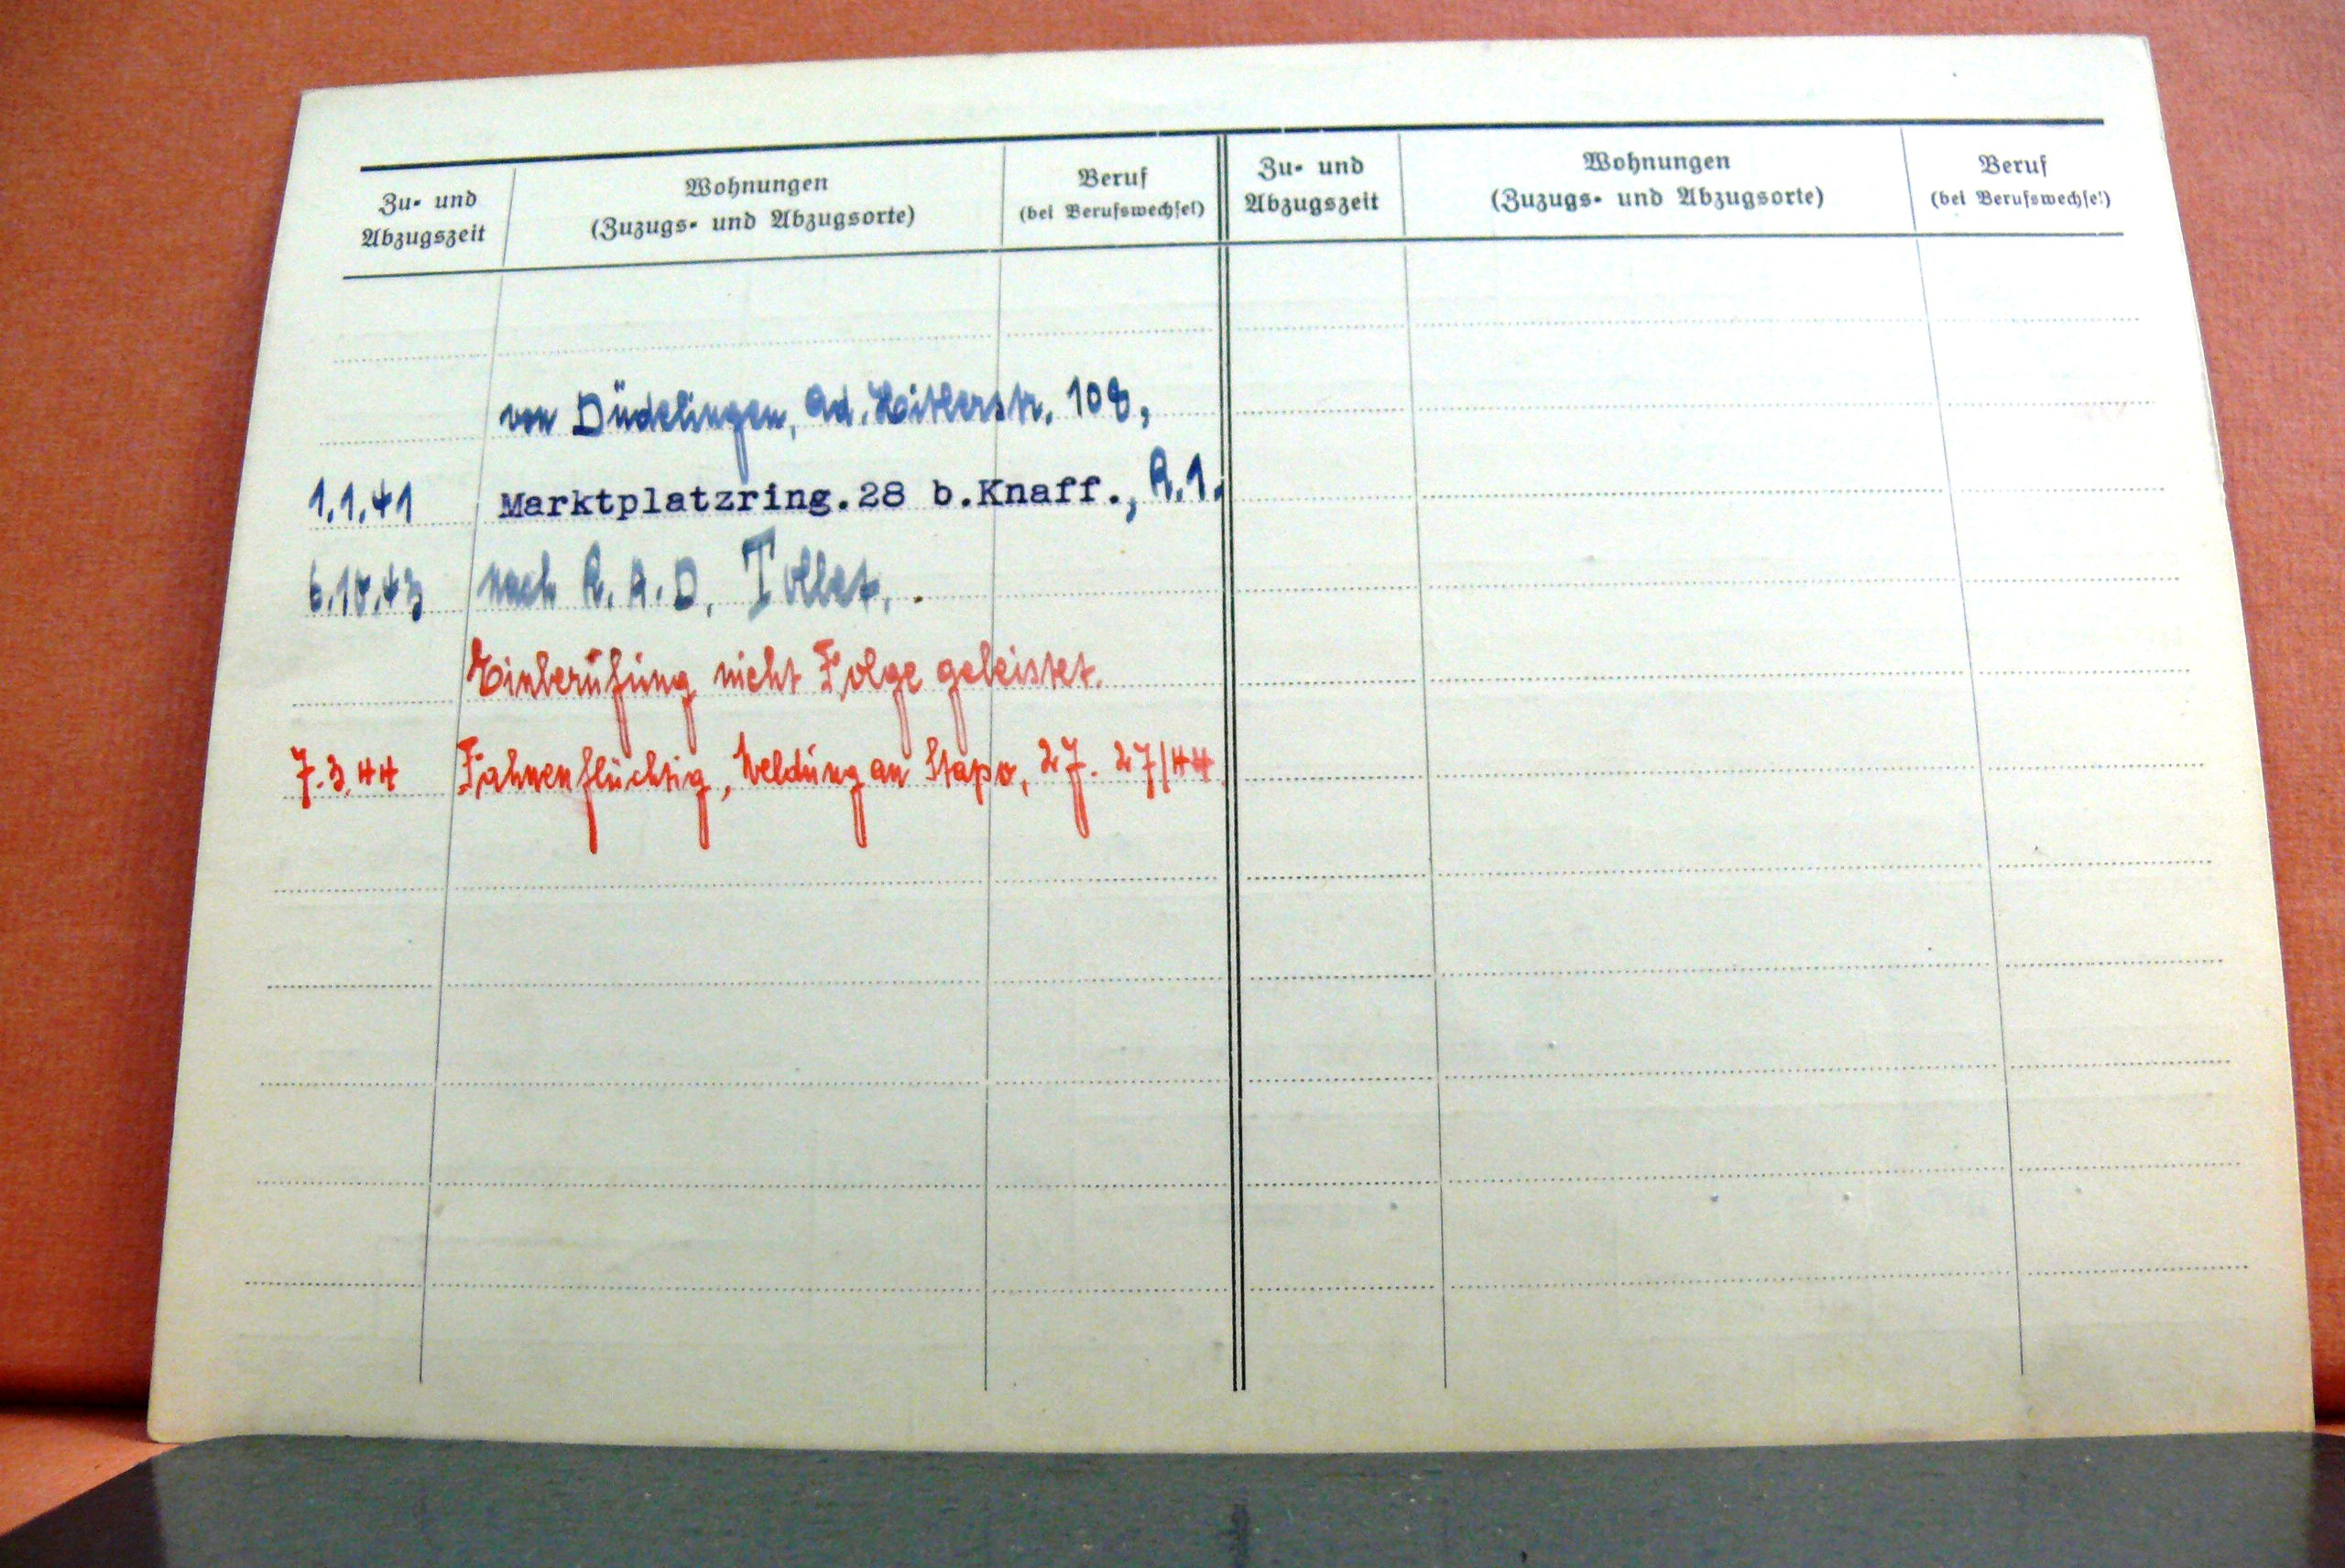 Zu- und Abzugszeit
Wohnungen
(Zuzugs- und Abzugsorte)
Beruf
(bei Berufswechsel)
Zu- und Abzugszeit
Wohnungen
(Zuzugs- und Abzugsorte)
Beruf
(bei Berufswechsel)
von Düdelingen, Ad. Hitlerstr. 108,
1.1.41 Marktplatzring.28 b.Knaff., R.1.
6.10.43 nach R.A.D. Tollet.
Einberufung nicht Folge geleistet.
7.3.44 Fahnenflüchtig, Meldung an Stapo, 27. 27/44